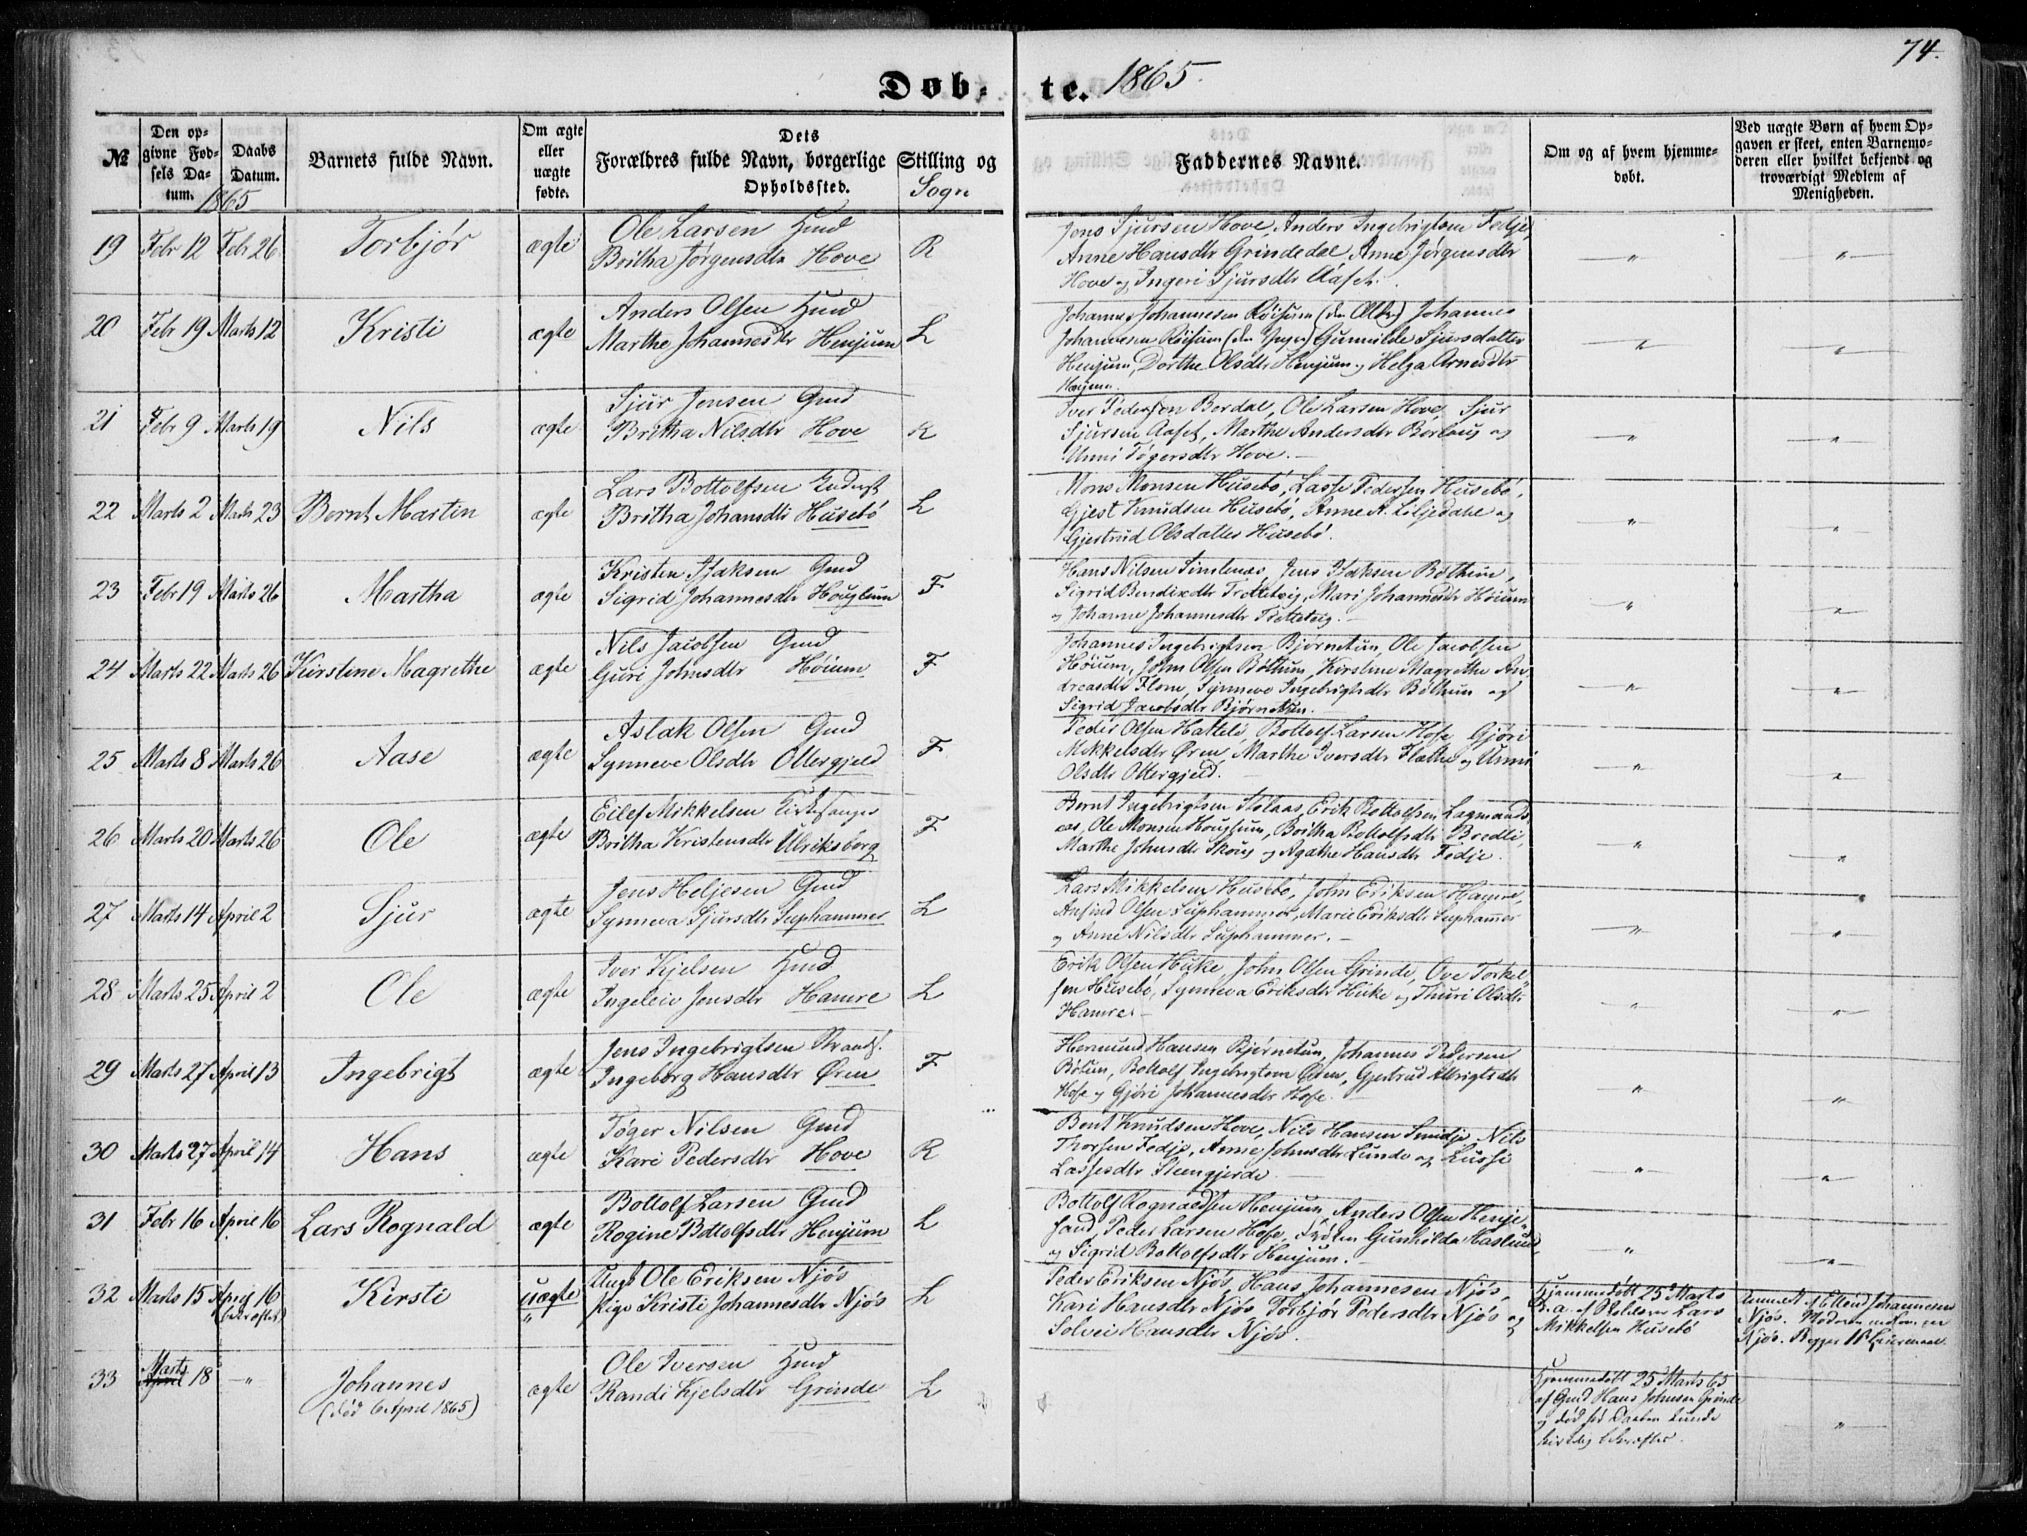 74.
Døb- te. 1865.
№
Den opgivne Fødsels Datum. 1865
Daabs Datum.
Barnets fulde Navn.
Om ægte eller uægte fødte.
Dets Forældres fulde Navn, borgerlige Stilling og Opholdssted. Sogn
Faddernes Navne.
Om og af hvem hjemmedøbt.
Ved uægte Børn af hvem Opgaven er skeet, enten Barnemoderen eller hvilket bekjendt og troværdigt Medlem af Menigheden.
19 Febr 12 Febr 26 Torbjør ægte
Ole Larsen Hmd
Britha Jørgensdtr Hove R
Jens Sjursen Hove, Anders Ingebrigtsen Fedje,
Anne Hansdtr Grindedal, Anne Jørgensdtr
Hove og Ingeri Sjursdtr Aaset.
20 Febr 19 Marts 12 Kristi ægte
Anders Olsen Hmd
Marthe Johannesdtr Henjum L
Johannes Johannesen Röisum (den Ældr) Johannes
Johannesen Röisum (den Yngre) Gunnilde Sjursdatter
Henjum, Dorthe Olsdtr Henjum og Helga Arnesdtr
21 Febr 9 Marts 19 Nils ægte
Sjur Jensen Gmd
Britha Nilsdtr Hove R
Iver Pedersen Bordal, Ole Larsen Hove, Sjur
Sjursen Aaset, Marthe Andersdtr Borlaug og
Unni Tøgersdtr Hove.
22 Marts 2 Marts 23 Bernt Martin ægte
Lars Bottolfsen
Britha Johansdtr Husebö L
Mons Monsen Husebö, Lasse Pedersen Husebö,
Gjest Knudsen Husebö, Anne A. Liljedahl og
Gjertrud Olsdatter Husebö.
23 Febr 19 Marts 26 Martha ægte
Kristen Isaksen Gmd
Sigrid Johannesdtr Houglum F
Hans Nilsen Simlenæs, Jens Isaksen Böthun,
Sigrid Bendixdtr Tretteteig, Mari Johannesdtr Höium
og Johanne Johannesdtr Tretteteig.
24 Marts 22 Marts 26 Kirstine Magrethe ægte
Nils Jacobsen Gmd
Guri Johnsdtr Höium F
Johannes Ingebrigtsen Bjørnetun, Ole Jacobsen
Höium, John Olsen Böthun, Kirstine Magrethe An-
dreasdtr Flom, Synneve Ingebrigtsdtr Böthun og
Sigrid Jacobsdtr Bjørnetun.
25 Marts 8 Marts 26 Aase ægte
Aslak Olsen Gmd
Synneve Olsdtr Ottergjeld F
Peder Olsen Hatteli, Bottolf Larsen Hofe, Gjøri
Mikkelsdtr Øren, Marthe Iversdtr Flathe og Unni
Olsdtr Ottergjeld.
26 Marts 20 Marts 26 Ole ægte
Eilef Mikkelsen Kirkesanger
Britha Kristensdtr Ulriksborg F
Bernt Ingebrigtsen Stölaas, Erik Bottolfsen Lagmands
aas, Ole Monsen Houglum, Britha Bottolfsdtr Bredli,
Marthe Johnsdtr Skoug og Agathe Hansdtr Fedje.
27 Marts 14 April 2 Sjur ægte
Jens Heljesen Gmd
Synneva Sjursdtr Suphammer L
Lars Mikkelsen Husebö, John Eriksen Hamre,
Anfind Olsen Suphammer, Marie Eriksdtr Suphamer
og Anne Nilsdtr Suphammer.
28 Marts 25 April 2 Ole ægte
Iver Kjelsen Hmd
Ingeleiv Jensdtr Hamre L
Erik Olsen Huke, John Olsen Grinde, Ove Torkel-
sen Husebö, Synneva Eriksdtr Huke og Thuri Olsdtr
Hamre.
29 Marts 27 April 13 Ingebrigt ægte
Jens Ingebrigtsen Strands.
Ingeborg Hansdtr Øren F
Hermund Hansen Bjørnetun, Johannes Pedersen
Bötun, Bottolf Ingebrigtsen Øren, Gjertrud Albrigtsdtr
Hofe og Gjøri Johannesdtr Hofe.
30 Marts 27 April 14 Hans ægte
Tøger Nilsen Gmd
Kari Pedersdtr Hove R
Bent Knudsen Hove, Nils Hansen Smidje, Nils
Thorsen Fedje, Anne Johnsdtr Lunde og Lussi
Lassesdtr Steengjerde
31 Febr 16 April 16 Lars Rognald ægte
Bottolf Larsen Gmd
Rogine Bottolfsdtr Henjum L
Bottolf Rognaldsen Henjum, Anders Olsen Henje-
sand, Peder Larsen Hofe, Frøken Gunhilda Haslund
og Sigrid Bottolfsdtr Henjum.
32 Marts 15 April 16 (bekræftet) Kirsti uægte
Ungk Ole Eriksen Njøs
Pige Kristi Johannesdtr Njøs L
Peder Eriksen Njøs, Hans Johannesen Njøs,
Kari Hansdtr Njøs, Torbjør Pedersdtr Njøs og
Solvei Hansdtr Njøs.
Hjemmedöbt 25de Marts
af Skolelærer Lars
Mikkelsen Husebö
Anmeldt af Johannesen
Njøs. Moderen
Njøs. Begges 1ste Leiermaal.
33 Marts 18 Johannes
(død 6 April 1865) ægte
Ole Iversen Hmd
Randi Kjelsdtr Grinde L
Hjemmedöbt 25 Marts 65
af Gmd Hans Johnsen Grinde
og død før Daaben kunde
kirkelig bekræftes.